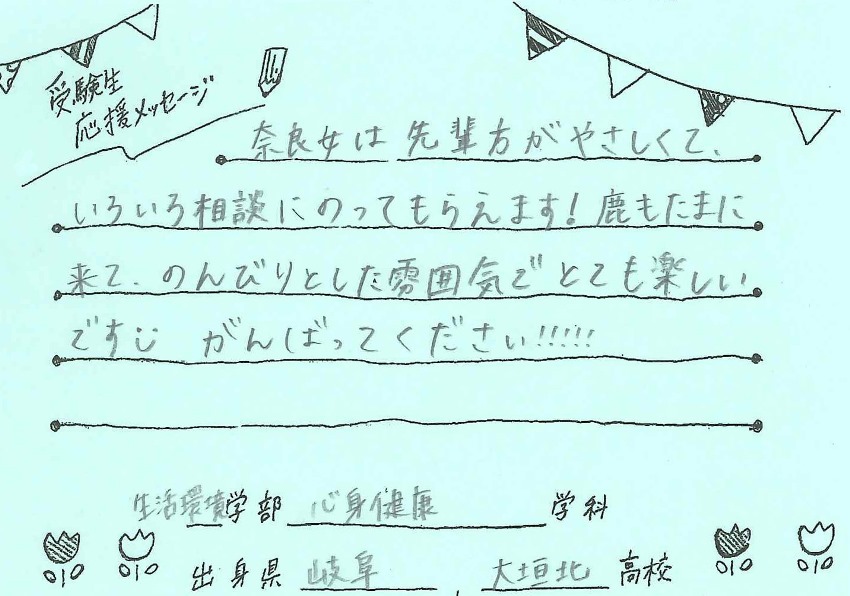 受験生
応援メッセージ
奈良女は先輩方がやさしくて、
いろいろ相談にのってもらえます!鹿もたまに
来て、のんびりとした雰囲気でとても楽しい
です がんばってください!!!!!
生活環境学部 心身健康 学科
出身県 岐阜 、 大垣北 高校